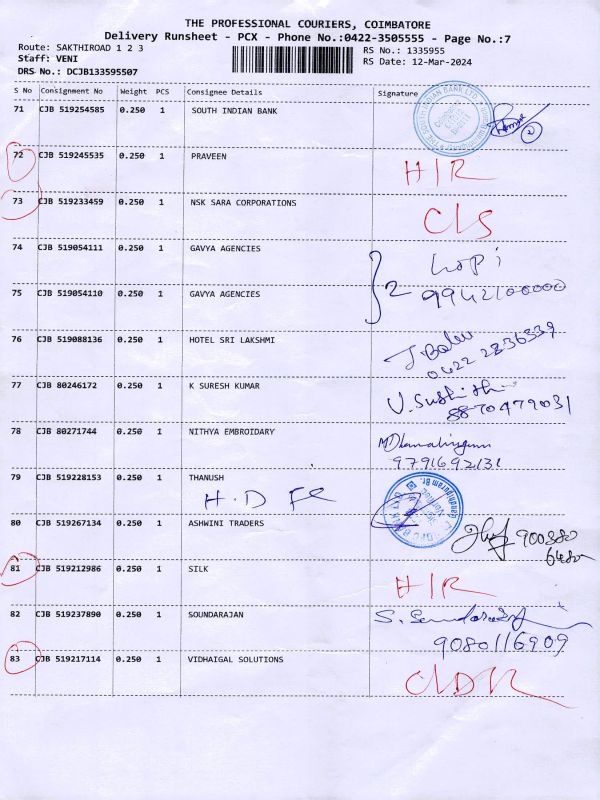 THE PROFESSIONAL COURIERS, COIMBATORE
Delivery Runsheet - PCX - Phone No.:0422-3505555 - Page No.:7
Route: SAKTHIROAD 1 2 3
RS No.: 1335955
Staff: VENI
RS Date: 12-Mar-2024
DRS No.: DCJB133595507
S No Consignment No Weight PCS Consignee Details Signature
71 CJB 519254585 0.250 1 SOUTH INDIAN BANK
72 CJB 519245535 0.250 1 PRAVEEN H/R
73 CJB 519233459 0.250 1 NSK SARA CORPORATIONS C/S
74 CJB 519054111 0.250 1 GAVYA AGENCIES
75 CJB 519054110 0.250 1 GAVYA AGENCIES } 2 9942100000
76 CJB 519088136 0.250 1 HOTEL SRI LAKSHMI
0422 2836339
77 CJB 80246172 0.250 1 K SURESH KUMAR
8870479031
78 CJB 80271744 0.250 1 NITHYA EMBROIDARY
9791692131
79 CJB 519228153 0.250 1 THANUSH
80 CJB 519267134 0.250 1 ASHWINI TRADERS
81 CJB 519212986 0.250 1 SILK H/R
82 CJB 519237890 0.250 1 SOUNDARAJAN
9080116909
83 CJB 519217114 0.250 1 VIDHAIGAL SOLUTIONS